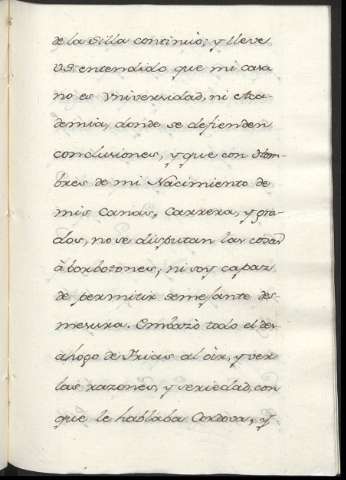 de la Silla continuò; y lleve
V.S. entendido que mi casa
no es Vniversidad, ni Aca-
demia, donde se defienden
conclusiones, y que con Hom-
bres de mi Nacimiento de
mis Canas, Carrera, y gra-
dos, no se disputan las cosas
à borbotones, ni soy capaz
de permitir semejante des-
mesura. Embarzò todo el des-
ahogo de Frias al oìr, y ver
las razones, y seriedad, con
que le hablaba Cordova, y